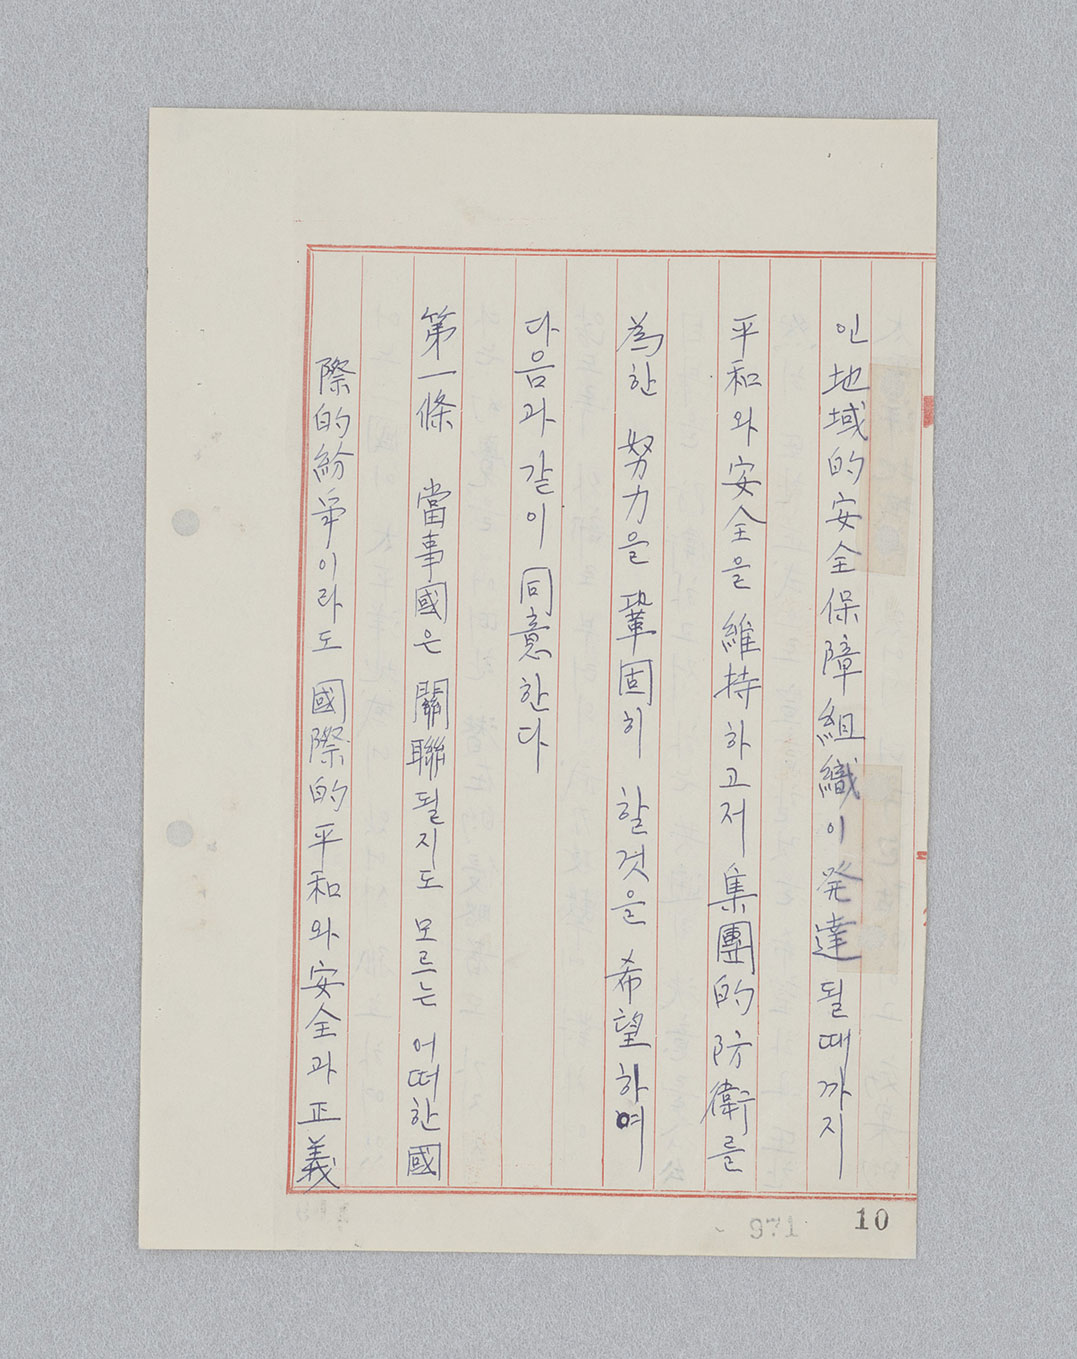 인 地域的 安全保障組織이 発達될때까지
平和와 安全을 維持하고저 集團的 防衛를
為한 努力을 鞏固히 할것을 希望하여
다음과 같이 同意한다
第一條 當事國은 關聯될지도 모르는 어떠한 國
際的 紛爭이라도 國際的 平和와 安全과 正義
971
10